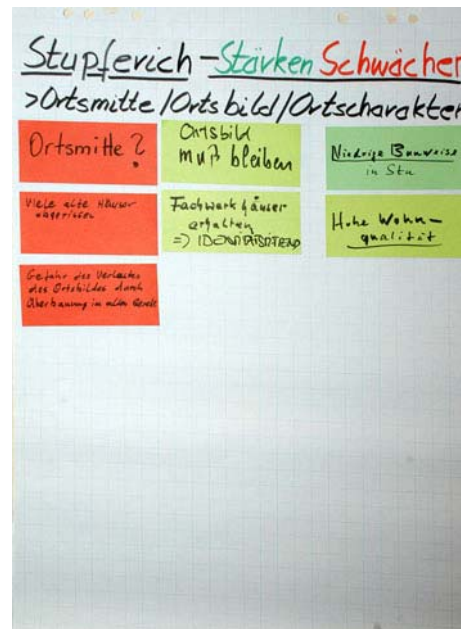 Stupferich – Stärken Schwächen
>Ortsmitte/Ortsbild/Ortscharakter
Ortsmitte?
Viele alte Häuser
abgerissen
Gefahr des Verlustes
des Ortsbildes durch
Überbauung in allen
Ortsbild
muß bleiben
Fachwerkhäuser
erhalten
=>
Niedrige Bauweise
in Stu
Hohe Wohn-
qualität